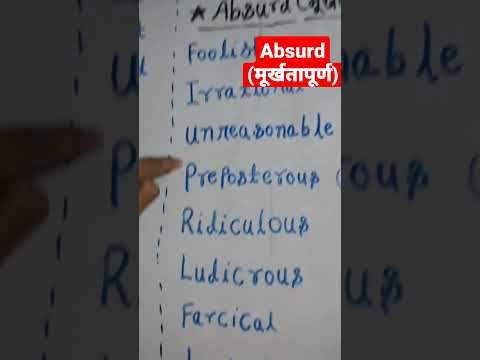 ★ Absurd
Absurd
(मूर्खतापूर्ण)
Irrational
Unreasonable
Preposterous
Ridiculous
Ludicrous
Farcical